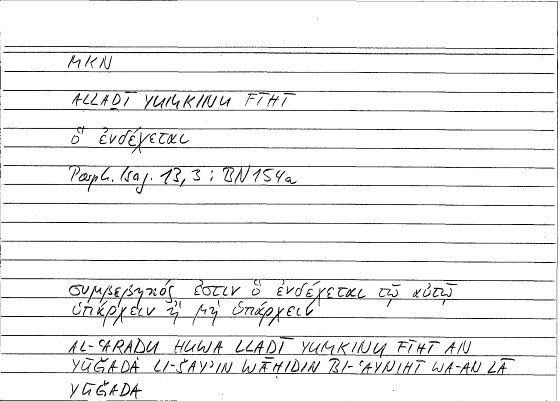 MKN
ALLAḎĪ YUMKINU FĪHĪ
ὃ ἐνδέχεται
Porph. Isag. 13,3 : BN 154a
συμβεβηκός ἐστιν ὃ ἐνδέχεται τῷ αὐτῷ
ὑπάρχειν ἢ μὴ ὑπάρχειν
AL-ʿARAḌU HUWA LLAḎĪ YUMKINU FĪHĪ AN
YŪǦADA LI-ŠAYʾIN WĀḤIDIN BI-ʿAYNIHĪ WA-AN LĀ
YŪǦADA